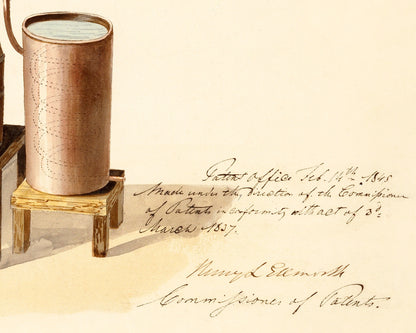 Patent Office Feb. 14th. 1845
Made under the direction of the Commissioner
of Patents in conformity with act of 3d.
March 1837.
Henry L Ellsworth
Commissioner of Patents.